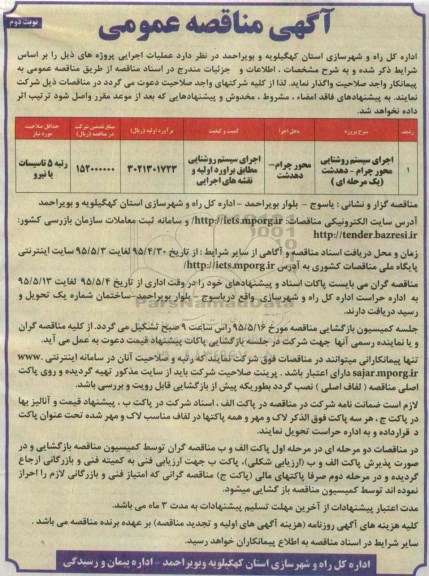 نوبت دوم
آگهی مناقصه عمومی
اداره کل راه و شهرسازی استان کهگیلویه و بویراحمد در نظر دارد عملیات اجرایی پروژه های ذیل را بر اساس
شرایط ذکر شده و به شرح مشخصات ، اطلاعات و جزئیات مندرج در اسناد مناقصه از طریق مناقصه عمومی به
پیمانکار واجد صلاحیت واگذار نماید. لذا از کلیه شرکتهای واجد صلاحیت دعوت می گردد در مناقصات ذیل شرکت
نمایند. به پیشنهادهای فاقد امضاء ، مشروط ، مخدوش و پیشنهادهایی که بعد از موعد مقرر واصل شود ترتیب اثر
داده نخواهد شد.
ردیف شرح پروژه محل اجرا کمیت و کیفیت برآورد اولیه (ریال) مبلغ تضمین شرکت در مناقصه (ریال) حداقل صلاحیت مورد نیاز
۱ اجرای سیستم روشنایی محور چرام - دهدشت (یک مرحله ای) محور چرام- دهدشت اجرای سیستم روشنایی مطابق برآورد اولیه و نقشه های اجرایی ۳۰۲۱۳۰۱۷۲۳ ۱۵۲۰۰۰۰۰۰ رتبه ۵ تاسیسات یا نیرو
مناقصه گزار و نشانی : یاسوج - بلوار بویراحمد - اداره کل راه و شهرسازی استان کهگیلویه و بویراحمد
آدرس سایت الکترونیکی مناقصات http://iets.mporg.ir/ و سامانه ثبت معاملات سازمان بازرسی کشور:
http://tender.bazresi.ir
زمان و محل دریافت اسناد مناقصه و آگاهی از سایر شرایط : از تاریخ ۹۵/۴/۳۰ لغایت ۹۵/۵/۳ سایت اینترنتی
پایگاه ملی مناقصات کشوری به آدرس http://iets.mporg.ir/
مناقصه گران می بایست پاکات اسناد و پیشنهادهای خود را در وقت اداری از تاریخ ۹۵/۵/۴ لغایت ۹۵/۵/۱۳
به اداره حراست اداره کل راه و شهرسازی واقع در یاسوج - بلوار بویراحمد-ساختمان شماره یک تحویل و
رسید دریافت دارند.
جلسه کمیسیون بازگشایی مناقصه مورخ ۹۵/۵/۱۶ راس ساعت ۹ صبح تشکیل می گردد. از کلیه مناقصه گران
و یا نماینده رسمی آنها جهت شرکت در جلسه بازگشایی پاکات پیشنهاد قیمت دعوت به عمل می آید.
تنها پیمانکارانی میتوانند در مناقصات فوق شرکت نمایند که رتبه و صلاحیت آنان در سامانه اینترنتی www.
sajar.mporg.ir دارای اعتبار باشد . پرینت صلاحیت شرکت باید از سایت مذکور تهیه گردیده و روی پاکت
اصلی مناقصه ( لفاف اصلی ) نصب گردد بطوریکه پیش از بازگشایی قابل رویت و بررسی باشد.
لازم است ضمانت نامه شرکت در مناقصه در پاکت الف ، اسناد شرکت در پاکت ب ، پیشنهاد قیمت و آنالیز بها
در پاکت ج ، هر سه پاکت فوق الذکر لاک و مهر و همه پاکتها در لفاف مناسب لاک و مهر شده تحت عنوان پاکت
د قرارداده و به اداره حراست تحویل نمایند.
در مناقصات دو مرحله ای در مرحله اول پاکت الف و ب مناقصه گران توسط کمیسیون مناقصه بازگشایی و در
صورت پذیرش پاکت الف و ب (ارزیابی شکلی)، پاکت ب جهت ارزیابی فنی به کمیته فنی و بازرگانی ارجاع
گردیده و در مرحله دوم صرفا پاکتهای مالی (پاکت ج) مناقصه گرانی که امتیاز فنی و بازرگانی لازم را احراز
نموده اند توسط کمیسیون مناقصه باز گشایی میشود.
مدت اعتبار پیشنهادات از آخرین مهلت تسلیم پیشنهادات به مدت ۳ ماه می باشد.
کلیه هزینه های آگهی روزنامه (هزینه آگهی های اولیه و تجدید مناقصه) بر عهده برنده مناقصه می باشد .
سایر شرایط در اسناد مناقصه به اطلاع پیمانکاران خواهد رسید.
اداره کل راه و شهرسازی استان کهگیلویه وبویراحمد - اداره پیمان و رسیدگی